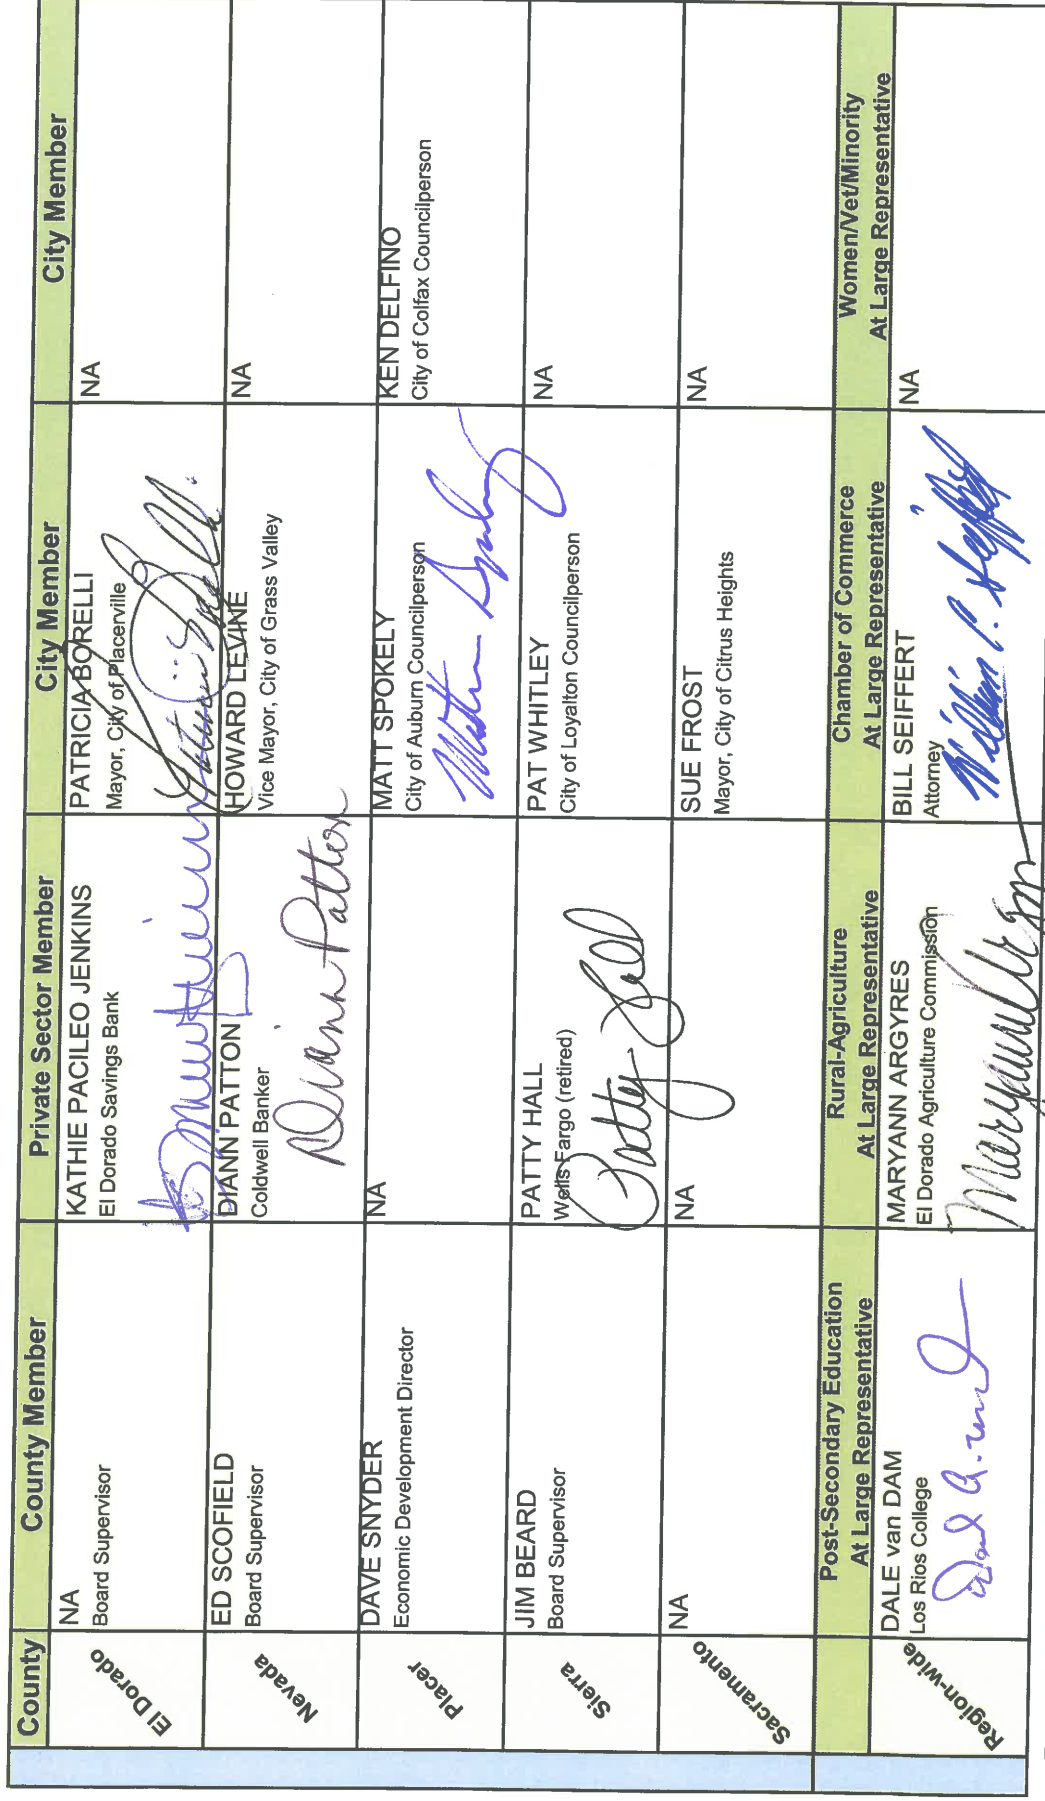 County County Member Private Sector Member City Member City Member
El Dorado
NA
Board Supervisor
KATHIE PACILEO JENKINS
El Dorado Savings Bank
PATRICIA BORELLI
Mayor, City of Placerville
NA
Nevada
ED SCOFIELD
Board Supervisor
DIANN PATTON
Coldwell Banker
Diann Patton
HOWARD LEVINE
Vice Mayor, City of Grass Valley
NA
Placer
DAVE SNYDER
Economic Development Director
NA
MATT SPOKELY
City of Auburn Councilperson
KEN DELFINO
City of Colfax Councilperson
Sierra
JIM BEARD
Board Supervisor
PATTY HALL
Wells Fargo (retired)
Patty Hall
PAT WHITLEY
City of Loyalton Councilperson
NA
Sacramento
NA
NA
SUE FROST
Mayor, City of Citrus Heights
NA
Post-Secondary Education
At Large Representative
Rural-Agriculture
At Large Representative
Chamber of Commerce
At Large Representative
Women/Vet/Minority
At Large Representative
Region-wide
DALE van DAM
Los Rios College
MARYANN ARGYRES
El Dorado Agriculture Commission
BILL SEIFFERT
Attorney
William C. Seiffert
NA